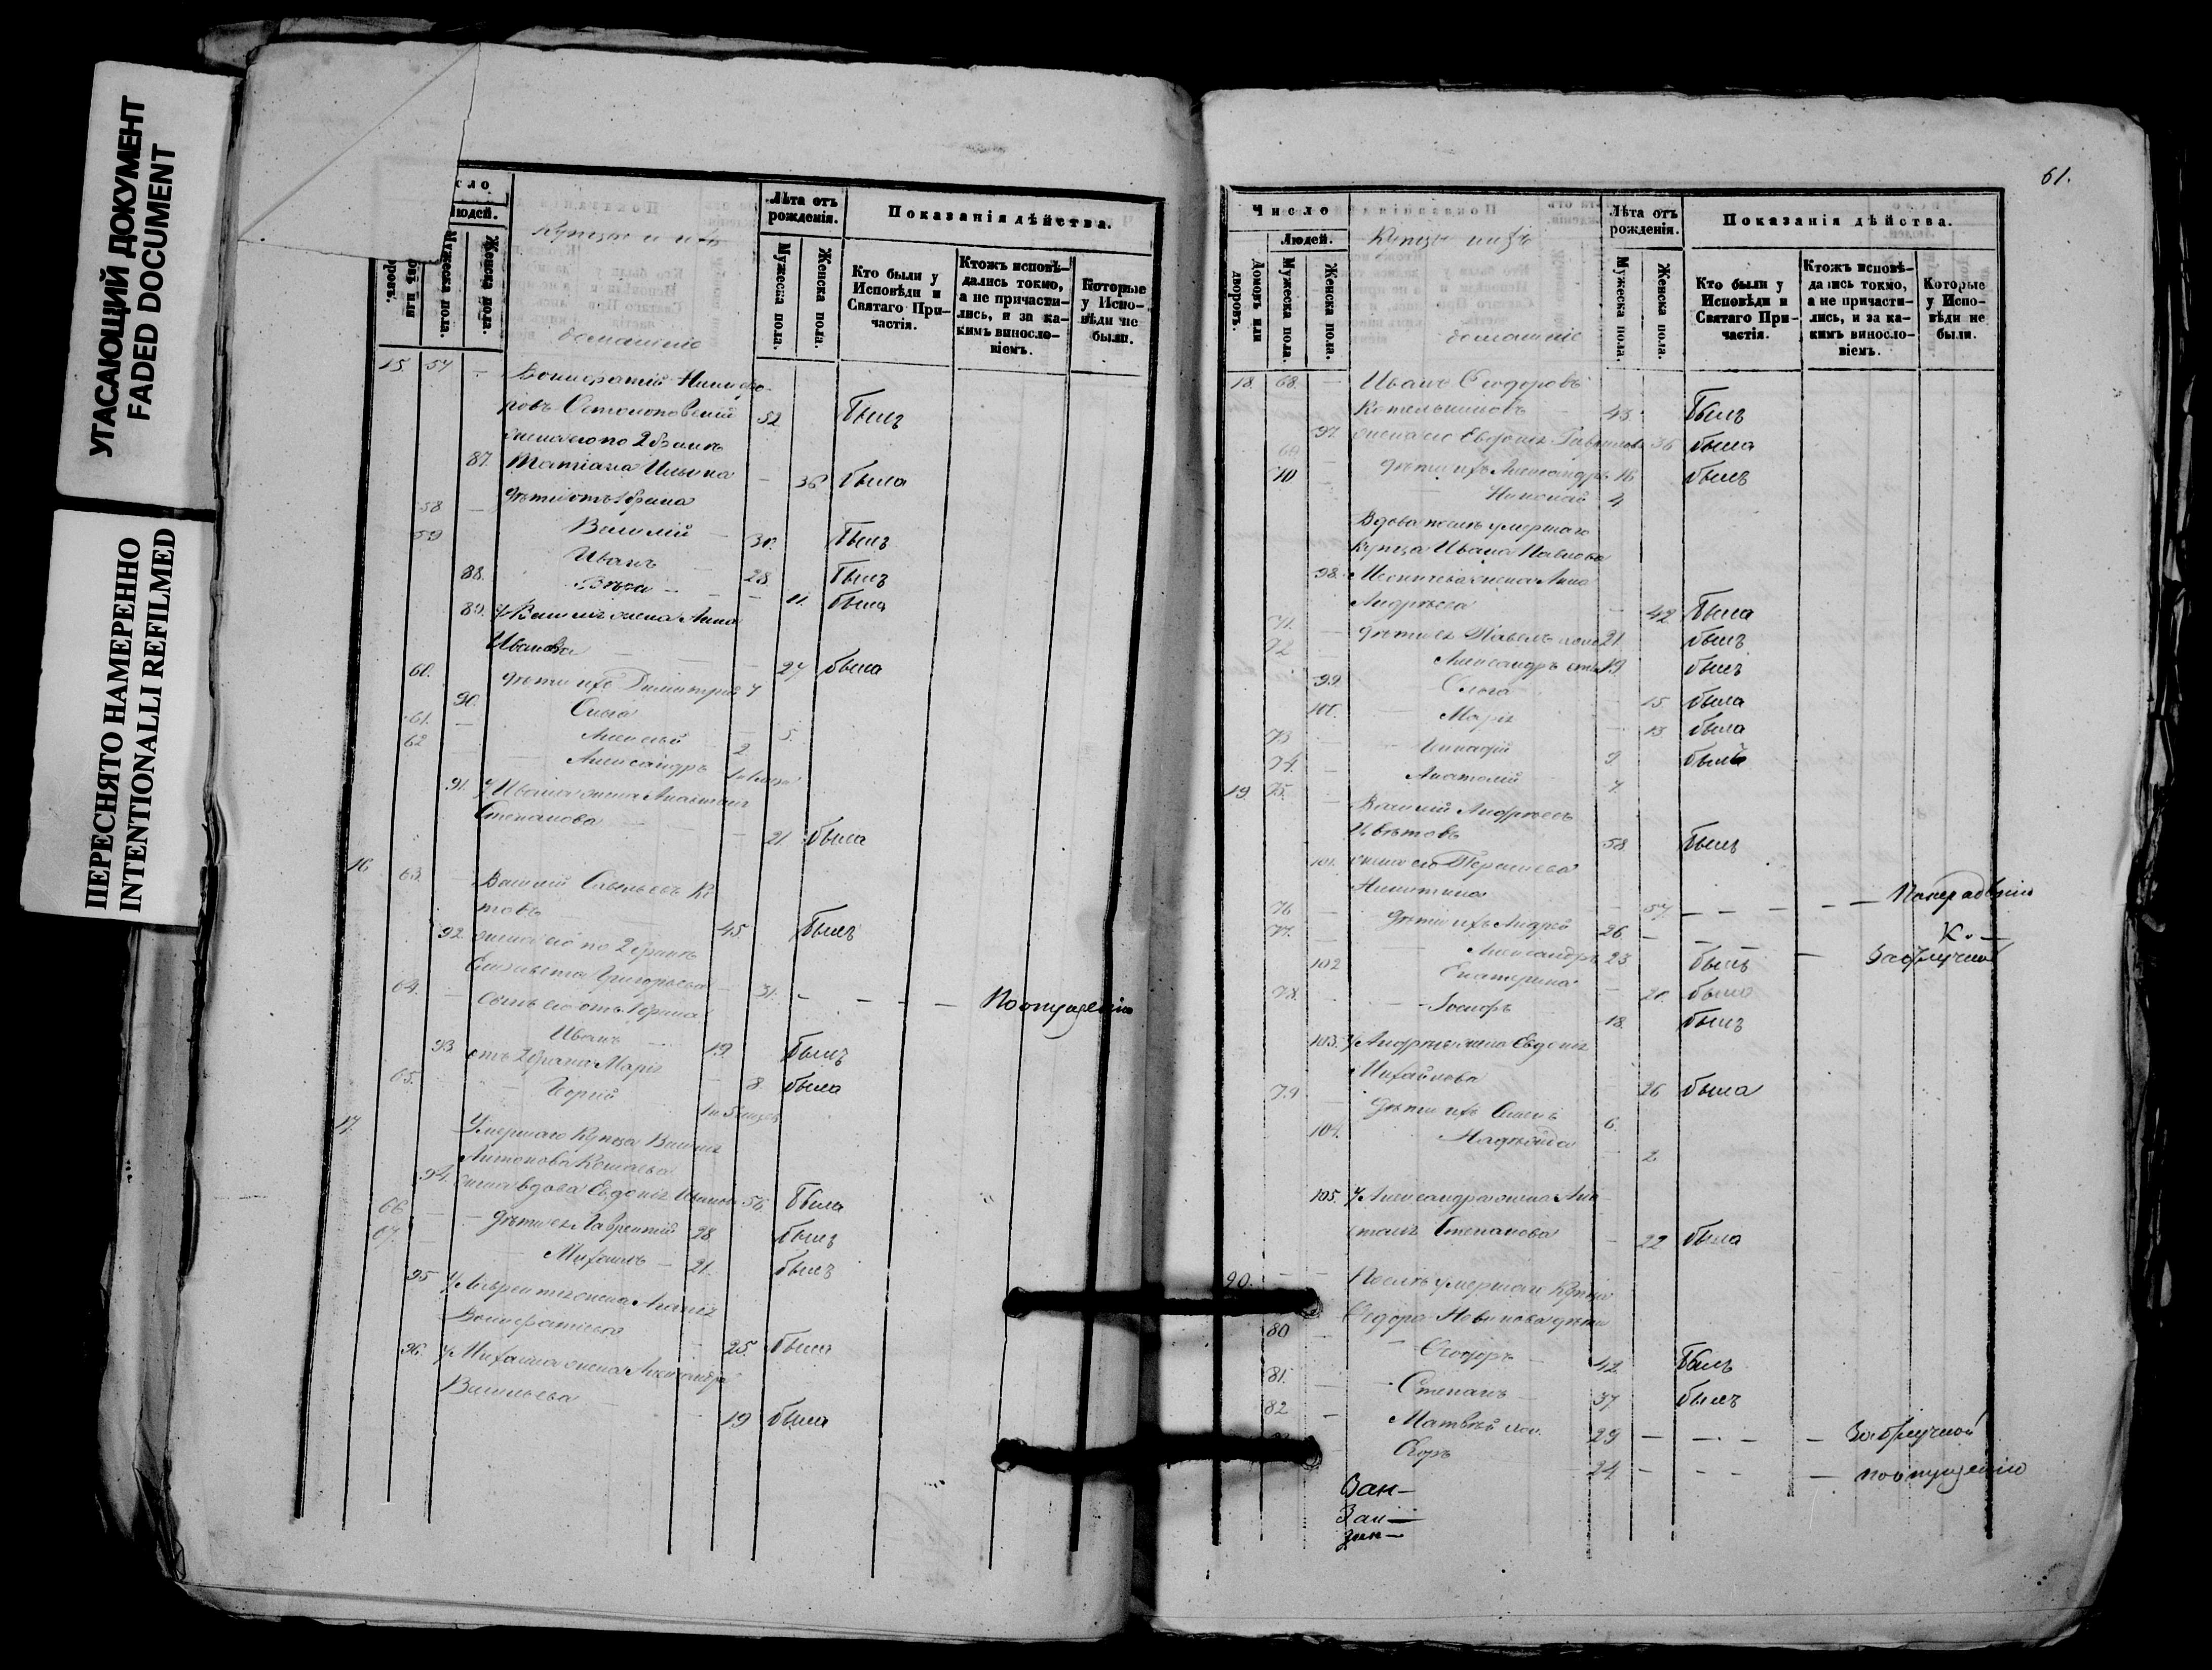 УГАСАЮЩИЙ ДОКУМЕНТ
FADED DOCUMENT
ПЕРЕСНЯТО НАМЕРЕННО
INTENTIONALLI REFILMED
сло
Людей.
Мужеска пола.
Женска пола.
Купцы и ихъ
домашніе
Лѣта отъ рожденія.
Мужеска пола.
Женска пола.
Показанія дѣйства.
Кто были у Исповѣди и Святаго Причастія.
Ктожъ исповѣдались токмо, а не причастились, и за какимъ винословіемъ.
Которые у Исповѣди не были.
15 57 — Вонифатій Никифо-
ровъ Остолоповскій 52 былъ
жена его по 2 бракѣ
87. Татіана Ильина — 36 была
дѣти отъ 1 брака
58 — Василій 30. былъ
59 Иванъ — 28 былъ
88. Вѣра — — 11. была
89. у Василія жена Анна
Иванова — — 27 была
60. дѣти ихъ Димитрій 7
90. Ольга 5.
61. — Алексѣй 2
62 — Александръ
91. у Ивана жена Анастасія
Степанова — — 21 была
16 63. — Василій Савельевъ Ко
товъ 45. былъ
92. жена его по 2 бракѣ
Елизавета Григорьева — 31. — — — По опущенію
64. — Сынъ его отъ 1 брака
Иванъ — 19. былъ
93 отъ 2 брака Марія — 8 была
65. — Юрій
17. Умершаго Купца Василія
Антонова Кошаева
94. жена вдова Евдокія Иванова 56. была
66 — дѣти ея Лаврентій 28 былъ
67. — Михаилъ — 21. былъ
95 у Лаврентія жена Агапія
Вонифатіева — 25. была
96. у Михаила жена Александра
Васильева — 19 была
61.
Число
Домовъ или дворовъ.
Людей.
Мужеска пола.
Женска пола.
Купцы и ихъ
домашніе
Лѣта отъ рожденія.
Мужеска пола.
Женска пола.
Показанія дѣйства.
Кто были у Исповѣди и Святаго Причастія.
Ктожъ исповѣдались токмо, а не причастились, и за какимъ винословіемъ.
Которые у Исповѣди не были.
18. 68. — Иванъ Ѳеодоровъ
Котельниковъ 43 былъ
97. жена его Евдокія Гаврилова 36 была
69 дѣти ихъ Александръ 16 былъ
70 — Николай 4
Вдова послѣ умершаго
Купца Ивана Павлова
98. жена Анна
Андреева — 42 была
71. — дѣти ея Павелъ 21. былъ
72 — Александръ 19. былъ
99 Ольга 15 была
100. Марія — 13 была
73 — Геннадій 9. былъ
74. — Анатолій 7.
19. 75. — Василій Андреевъ
Цвѣтовъ 58 былъ
101. жена его Пераскева
Никитина — 57. — — — — По нерадѣнію
76 — дѣти ихъ Андрей 26 — — К. —
77. — Александръ 23 былъ — За отлучкой
102 Екатерина — 20. была
78. — Іосифъ 18. былъ
103. у Андрея жена Евдокія
Михайлова 26 была
79 — дѣти ихъ Семенъ 6.
104. Надежда — 2
105. у Александра жена Ана
стасія Степанова — 22 была
20. — — Послѣ умершаго Купца
Ѳедора Новикова дѣти
80 — Ѳеодоръ 42 былъ
81. — Степанъ 37 былъ
82 — Матвѣй 29 — — — — За отлучкой
Егоръ 24 — — — — по опущенію
Зак—
Зак—